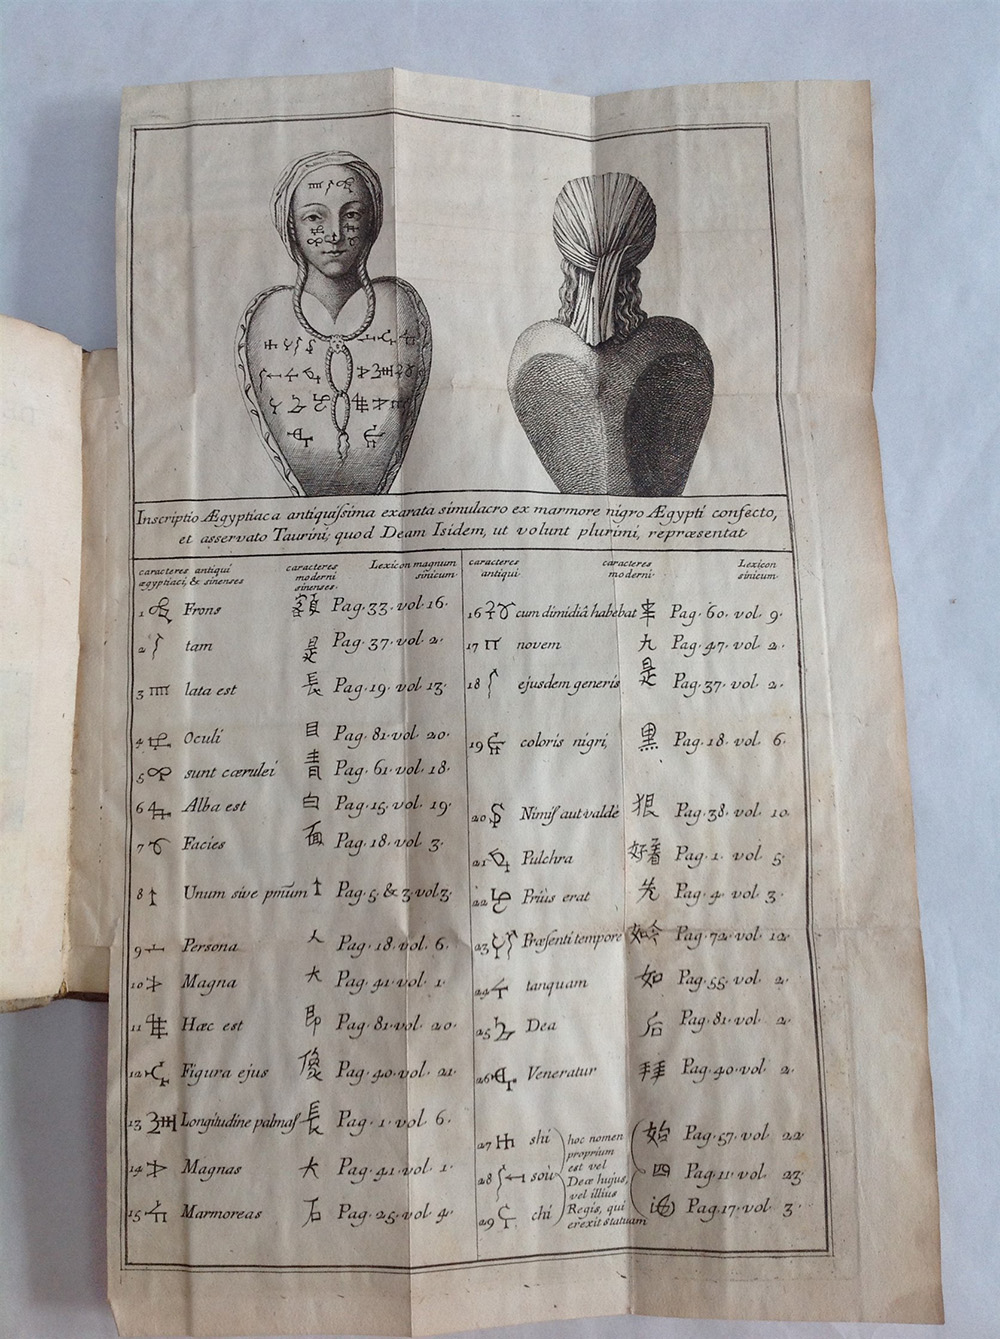 Inscriptio Ægyptiaca antiquissima exarata simulacro ex marmore nigro Ægypti confecto,
et asservato Taurini; quod Deam Isidem, ut volunt plurimi, repræsentat
caracteres antiqui
ægyptiaci, & sinenses
caracteres
moderni
sinenses
Lexicon magnum
sinicum
1 Frons 額 Pag. 33. vol. 16.
2 tam 是 Pag. 37. vol. 2.
3 lata est 長 Pag. 19. vol. 13.
4 Oculi 目 Pag. 81. vol. 20.
5 sunt cærulei 青 Pag. 61. vol. 18.
6 Alba est 白 Pag. 15. vol. 19.
7 Facies 面 Pag. 18. vol. 3.
8 Unum sive pm̃um Pag. 5. & 3. vol 3.
9 Persona 人 Pag. 18. vol. 6.
10 Magna 大 Pag. 41. vol. 1.
11 Hæc est 即 Pag. 81. vol. 20.
12 Figura ejus Pag. 40. vol. 21.
13 Longitudine palmas 長 Pag. 1. vol. 6.
14 Magnas 大 Pag. 41. vol. 1.
15 Marmoreas 石 Pag. 25. vol. 4.
caracteres
antiqui
caracteres
moderni
Lexicon
sinicum
16 cum dimidiâ habebat Pag. 60. vol. 9.
17 novem 九 Pag. 47. vol. 2.
18 ejusdem generis 是 Pag. 37. vol. 2.
19 coloris nigri, 黑 Pag. 18. vol. 6.
20 Nimis aut valdè 狠 Pag. 38. vol. 10.
21 Pulchra 好看 Pag. 1. vol. 5.
22 Priùs erat 先 Pag. 4. vol. 3.
23 Præsenti tempore 如今 Pag. 72. vol. 12.
24 tanquam 如 Pag. 55. vol. 2.
25 Dea 后 Pag. 81. vol. 2.
26 Veneratur 拜 Pag. 40. vol. 2.
27 shi 始 Pag. 57. vol. 22
28 soù 四 Pag. 11. vol. 23.
29 chi Pag. 17. vol. 3.
hoc nomen
proprium
est vel
Deæ hujus,
vel illius
Regis, qui
erexit statuam